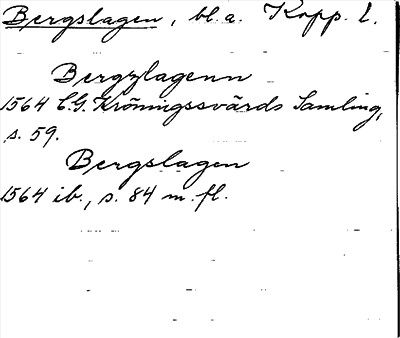 Bergslagen, bl. a. Kopp. l.
Bergzlagenn
1564 C.G. Kröningssvärds Samling,
s. 59.
Bergslagen
1564 ib., s. 84 m. fl.